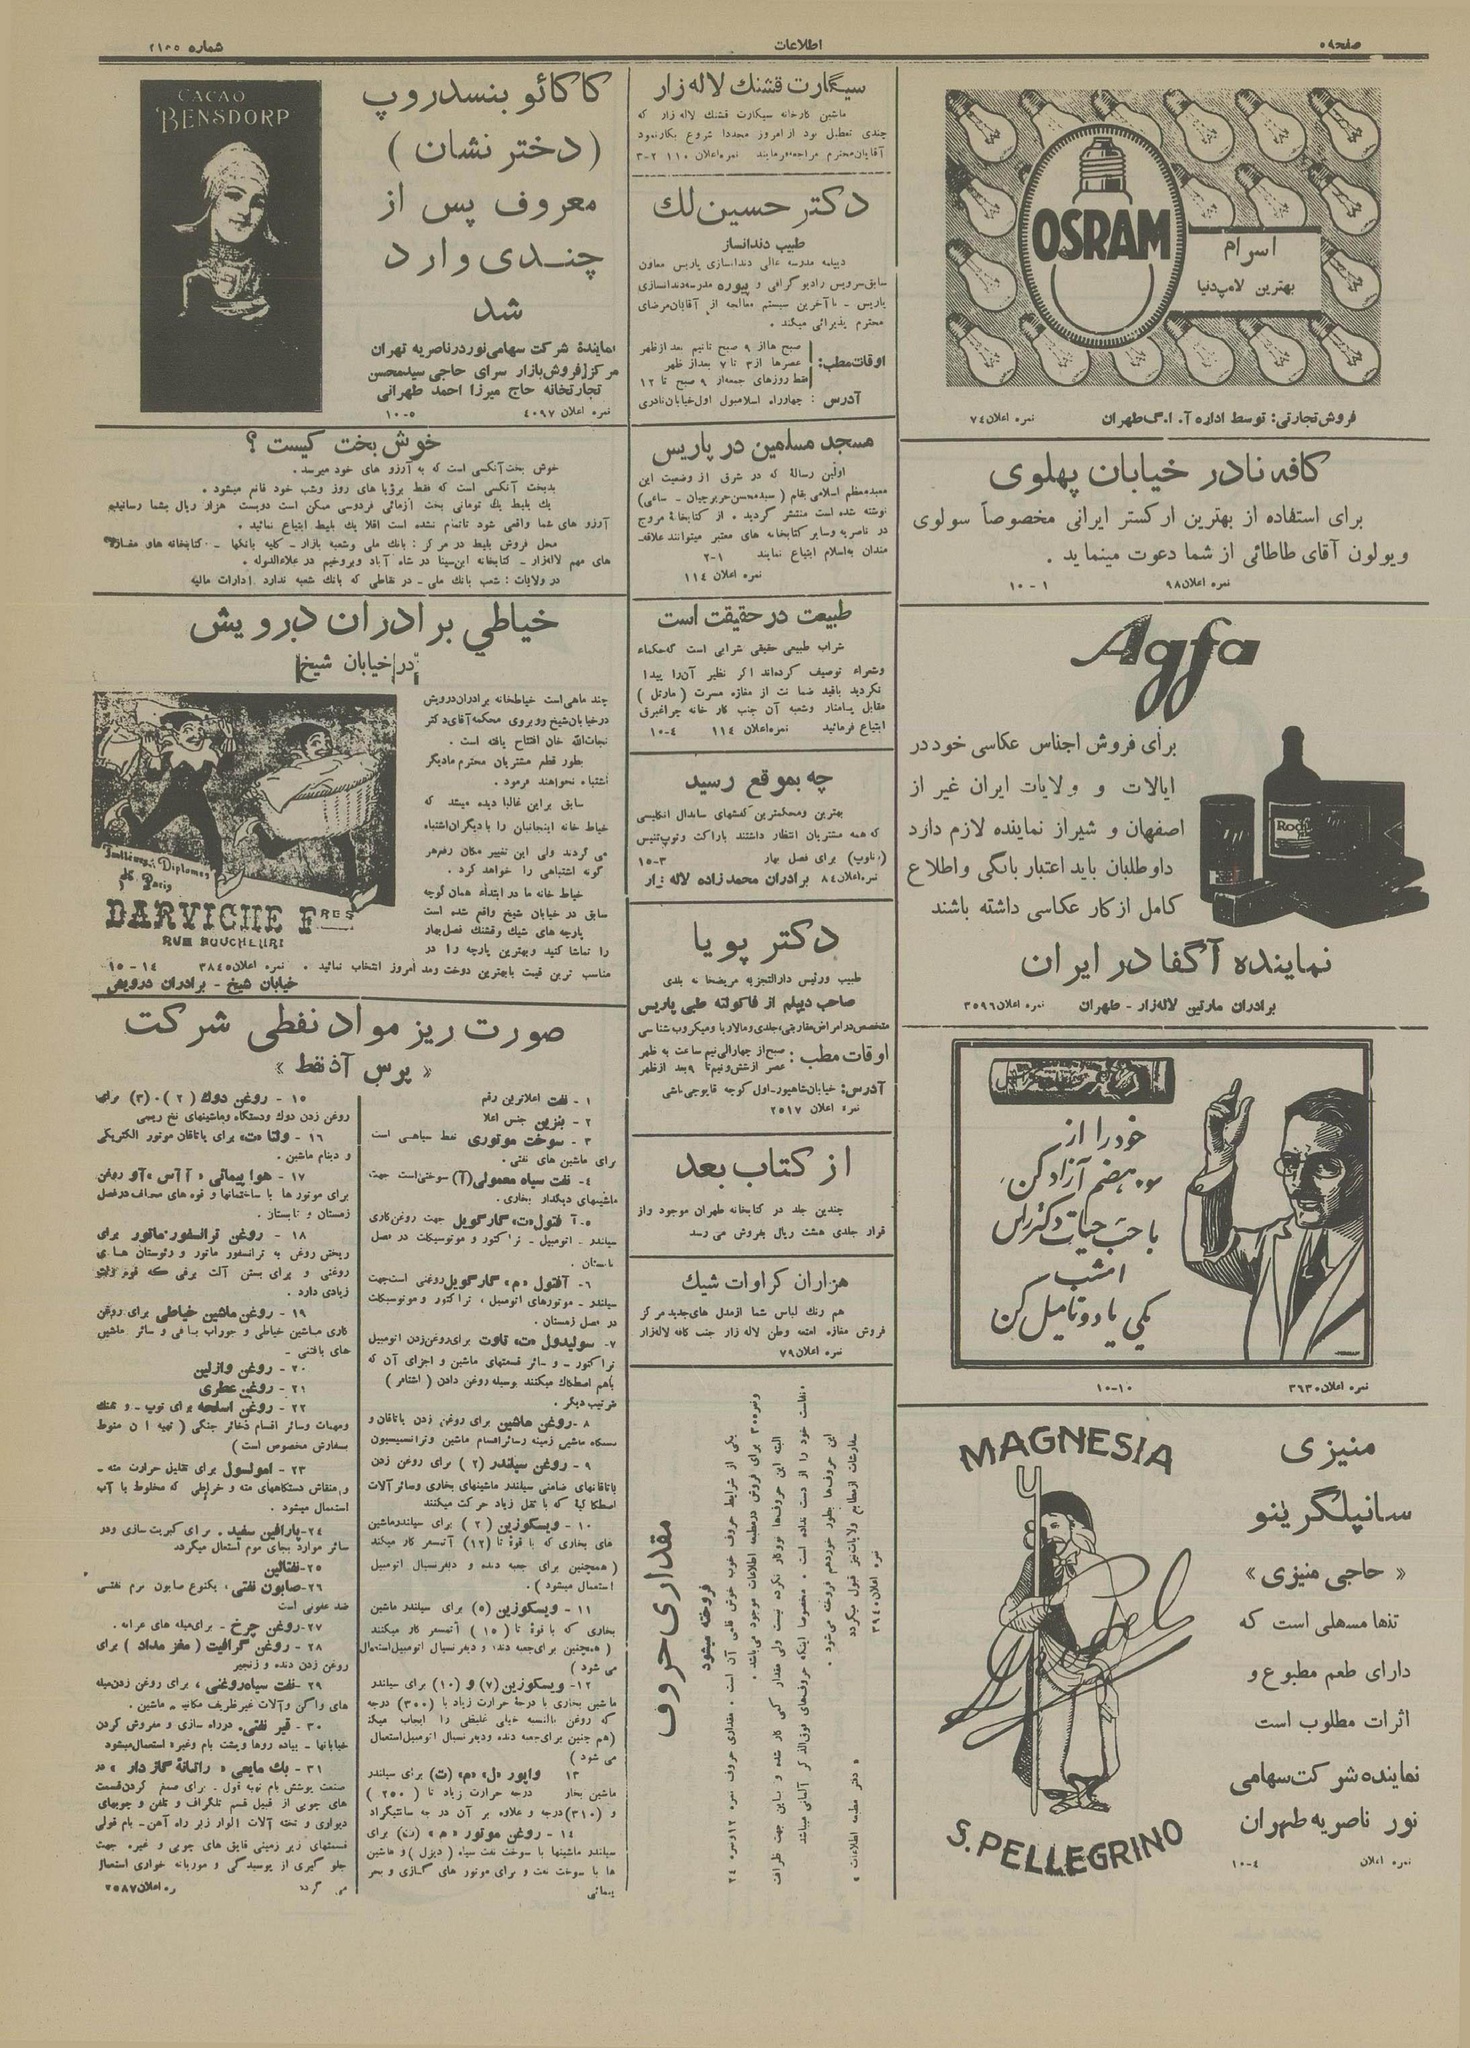 صفحه ۵
اطلاعات
شماره ۲۱۵۵
OSRAM
اسرام
بهترین لامپ دنیا
فروش تجارتی: توسط اداره آ. ا. گ طهران
نمره اعلان ۷۴
کافه نادر خیابان پهلوی
برای استفاده از بهترین ارکستر ایرانی مخصوصاً سولوی
ویولون آقای طاطائی از شما دعوت مینماید .
نمره اعلان ۹۸
۱ - ۱۰
Agfa
برای فروش اجناس عکاسی خود در
ایالات و ولایات ایران غیر از
اصفهان و شیراز نماینده لازم دارد
داوطلبان باید اعتبار بانگی و اطلاع
کامل از کار عکاسی داشته باشند
نماینده آگفا در ایران
برادران مارتین لاله‌زار - طهران
نمره اعلان ۳۵۹۶
خود را از
سوء هضم آزاد کن
با حب حیات دکتر راس
امشب
یکی یا دو تا میل کن
نمره اعلان ۳۶۳۰
۱۰-۱۰
MAGNESIA
S. PELLEGRINO
منیزی
سانپلگرینو
« حاجی منیزی »
تنها مسهلی است که
دارای طعم مطبوع و
اثرات مطلوب است
نماینده شرکت سهامی
نور ناصریه طهران
نمره اعلان
۴-۱۰
سیگارت قشنك لاله زار
ماشین کارخانه سیگارت قشنك لاله زار که
چندی تعطیل بود از امروز مجددا شروع بکار نمود
آقایان محترم مراجعه فرمایند نمره اعلان ۱۱۰ ۲-۳
دکتر حسین لك
طبیب دندانساز
دیپلمه مدرسه عالی دندانسازی پاریس معاون
سابق سرویس رادیوگرافی و پیوره مدرسه دندانسازی
پاریس - با آخرین سیستم معالجه از آقایان مرضای
محترم پذیرائی میکند .
اوقات مطب:
صبح ها از ۹ صبح تا نیم بعد از ظهر
عصرها از ۳ تا ۷ بعد از ظهر
فقط روزهای جمعه از ۹ صبح تا ۱۲
آدرس : چهارراه اسلامبول اول خیابان نادری
مسجد مسلمین در پاریس
اولین رسالهٔ که در شرق از وضعیت این
معبد معظم اسلامی بقلم ( سید محسن حریرچیان - ساعی)
نوشته شده است منتشر گردید . از کتابخانهٔ مروج
در ناصریه و سایر کتابخانه های معتبر میتوانند علاقه
مندان به اسلام ابتیاع نمایند ۱-۲
نمره اعلان ۱۱۴
طبیعت در حقیقت است
شراب طبیعی حقیقی شرابی است که حکماء
وشعراء توصیف کرده‌اند اگر نظیر آن را پیدا
نکردید باقید ضمانت از مغازه مسرت ( مارتل )
مقابل پامنار وشعبه آن جنب کارخانه چراغبرق
ابتیاع فرمائید نمره اعلان ۱۱۴ ۴-۱۰
چه بموقع رسید
بهترین ومحکمترین کفشهای ساندال انگلیسی
که همه مشتریان انتظار داشتند باراکت وتوپ تنیس
برای فصل بهار ۳-۱۵
نمره اعلان ۸۴ برادران محمدزاده لاله زار
دکتر پویا
طبیب ورئیس دارالتجزیه مریضخانه بلدی
صاحب دیپلم از فاکولته طبی پاریس
متخصص در امراض مقاربتی، جلدی ومالاریا ومیکروب شناسی
اوقات مطب:
صبح از چهار الی نیم ساعت به ظهر
عصر از شش ونیم تا ۹ بعد از ظهر
آدرس: خیابان شاهپور - اول کوچه قاپوچی باشی
نمره اعلان ۲۵۱۷
از کتاب بعد
چندین جلد در کتابخانه طهران موجود واز
قرار جلدی هشت ریال بفروش می رسد
هزاران کراوات شیك
هم رنك لباس شما از مدل های جدید مرکز
فروش مغازه امتعه وطن لاله زار جنب کافه لاله‌زار
نمره اعلان ۷۹
مقداری حروف
فروخته میشود
یکی از شرایط حروف خوب خوش قلمی آن است . مقداری حروف نمره ۱۲ ونمره ۲۴
ونمره ۳۰ برای فروش در مطبعه اطلاعات موجود می‌باشد .
البته این حروف‌ها نو و کار نکرده نیست ولی مقدار کمی کار شده و باین جهت ظرافت
ونفاست خود را از دست نداده است . مخصوصا اینکه حروف‌های فوق الذکر آلمانی میباشد
این حروف‌ها بطور خورده هم فروخته می‌شود .
سفارشات از مطابع ولایات نیز قبول میگردد
« دفتر مطبعه اطلاعات »
نمره اعلان ۳۹۴۰
CACAO
BENSDORP
کاکائو بنسدروپ
( دختر نشان )
معروف پس از
چندی وارد
شد
نمایندهٔ شرکت سهامی نور در ناصریه تهران
مرکز فروش بازار سرای حاجی سید محسن
تجارتخانه حاج میرزا احمد طهرانی
نمره اعلان ۴۰۹۷
۵-۱۰
خوش بخت کیست ؟
خوش بخت آنکسی است که به آرزو های خود میرسد .
بدبخت آنکسی است که فقط برؤیا های روز وشب خود قانع میشود .
یك بلیط یك تومانی بخت آزمائی فردوسی ممکن است دویست هزار ریال بشما رسانیده
آرزو های شما واقعی شود تا تمام نشده است اقلا یك بلیط ابتیاع نمائید .
محل فروش بلیط در مرکز : بانك ملی وشعبه بازار - کلیه بانکها - کتابخانه ها و مغازه
های مهم لاله‌زار - کتابخانه ابن سینا در شاه آباد وبروخیم در علاءالدوله .
در ولایات : شعب بانك ملی - در نقاطی که بانك شعبه ندارد ادارات مالیه
خیاطی برادران درویش
در خیابان شیخ
چند ماهی است خیاطخانه برادران درویش
در خیابان شیخ روبروی محکمه آقای دکتر
نجات‌الله خان افتتاح یافته است .
بطور قطع مشتریان محترم ما دیگر
اشتباه نخواهند فرمود .
سابق براین غالبا دیده میشد که
خیاط خانه اینجانبان را با دیگران اشتباه
می کردند ولی این تغییر مکان رفع هر
گونه اشتباهی را خواهد کرد .
خیاط خانه ما در ابتداء همان کوچه
سابق در خیابان شیخ واقع شده است
پارچه های شیك وقشنك فصل بهار
را تماشا کنید وبهترین پارچه را در
مناسب ترین قیمت با بهترین دوخت ومد امروز انتخاب نمائید .
نمره اعلان ۳۸۴۵
۱۴ - ۱۵
خیابان شیخ - برادران درویش
Tailleurs Diplomés
de Paris
DARVICHE FRES
صورت ریز مواد نفطی شرکت
« پرس آذ نفط »
۱ - نفت اعلاترین رقم
۲ - بنزین جنس اعلا
۳ - سوخت موتوری نفط سیاهی است
برای ماشین های نفتی .
۴ - نفت سیاه معمولی (آ) سوختی است جهت
ماشینهای دیگدار بخاری .
۵ - آفتول «ت» گارگویل جهت روغن کاری
سیلندر - اتومبیل - تراکتور و موتوسیکلت در فصل
تابستان .
۶ - آفتول «م» گارگویل روغنی است جهت
سیلندر - موتورهای اتومبیل ، تراکتور و موتوسیکلت
در فصل زمستان .
۷ - سولیدول «ت» تاوت برای روغن زدن اتومبیل
تراکتور - و سائر قسمتهای ماشین و اجزای آن که
باهم اصطکاك میکنند بوسیله روغن دادن ( اشتافر )
ترتیب دیگر .
۸ - روغن ماشین برای روغن زدن یاتاقان و
دستگاه ماشین زمینه وسائر اقسام ماشین وترانسمیسیون
۹ - روغن سیلندر (۲) برای روغن زدن
یاتاقانهای ضامنی سیلندر ماشینهای بخاری وسائر آلات
اصطکاکیه که با ثقل زیاد حرکت میکنند
۱۰ - ویسکوزین (۲) برای سیلندر ماشین
های بخاری که با قوهٔ تا (۱۲) آتمسفر کار میکند
( همچنین برای جعبه دنده و دیفرنسیال اتومبیل
استعمال میشود ) .
۱۱ - ویسکوزین (۵) برای سیلندر ماشین
بخاری که با قوهٔ تا (۱۵) آتمسفر کار میکند
( همچنین برای جعبه دنده و دیفرنسیال اتومبیل استعمال
می شود )
۱۲ - ویسکوزین (۷) و (۱۰) برای سیلندر
ماشین بخاری با درجهٔ حرارت زیاد با (۳۰۰) درجه
که روغن بالنسبه خیلی غلیظی را ایجاب میکند
(هم چنین برای جعبه دنده ودیفرنسیال اتومبیل استعمال
می شود )
۱۳ واپور «ل» «م» (ت) برای سیلندر
ماشین بخار درجه حرارت زیاد تا (۲۵۰)
و (۳۱۰) درجه و علاوه بر آن درجه سانتیگراد
۱۴ - روغن موتور «م» برای
سیلندر ماشینها با سوخت نفت سیاه ( دیزل ) و ماشین
ها با سوخت نفت و برای موتور های گازی و بحر
پیمائی
۱۵ - روغن دوك (۲) ۰ (۳) برای
روغن زدن دوك ودستگاه وماشینهای نخ ریسی
۱۶ - ولتا «ت» برای یاتاقان موتور الکتریکی
و دینام ماشین .
۱۷ - هوا پیمائی «آ آس» «آ» روغن
برای موتور ها با ساختمانها و قوه های مختلف در فصل
زمستان و تابستان .
۱۸ - روغن ترانسفورماتور برای
ریختن روغن به ترانسفور ماتور و رئوستان های
روغنی و برای بستن آلت برقی که قوه ولت
زیادی دارد .
۱۹ - روغن ماشین خیاطی برای روغن
کاری ماشین خیاطی و جوراب بافی و سائر ماشین
های بافتنی -
۲۰ - روغن وازلین
۲۱ - روغن عطری
۲۲ - روغن اسلحه برای توپ - و تفنك
ومهمات وسائر اقسام ذخائر جنگی ( تهیه آن منوط
بسفارش مخصوص است )
۲۳ - امولسول برای تقلیل حرارت مته -
و منقاش دستگاههای مته و خراطی که مخلوط با آب
استعمال میشود .
۲۴ - پارافین سفید . برای کبریت سازی ودر
سائر موارد بجای موم استعمال میگردد
۲۵ - نفتالین
۲۶ - صابون نفتی ، یکنوع صابون نرم نفتی
ضد عفونی است
۲۷ - روغن چرخ - برای میله های عرابه .
۲۸ - روغن گرافیت ( مغز مداد ) برای
روغن زدن دنده و زنجیر
۲۹ - نفت سیاه روغنی ، برای روغن زدن میله
های واگن وآلات غیر ظریف مکانیك ماشین .
۳۰ - قیر نفتی . در راه سازی و مفروش کردن
خیابانها - پیاده روها وپشت بام وغیره استعمال میشود
۳۱ - بك مایعی « رانانهٔ گاز دار » در
صنعت پوشش بام تهیه قول - برای صمغ کردن قسمت
های چوبی از قبیل قسم تلگراف و تلفن و چوبهای
دیواری و تخته آلات الوار زیر راه آهن - بام قولی
قسمتهای زیر زمینی قایق های چوبی و غیره جهت
جلو گیری از پوسیدگی و موریانه خواری استعمال
می گردد
نمره اعلان ۲۵۸۷